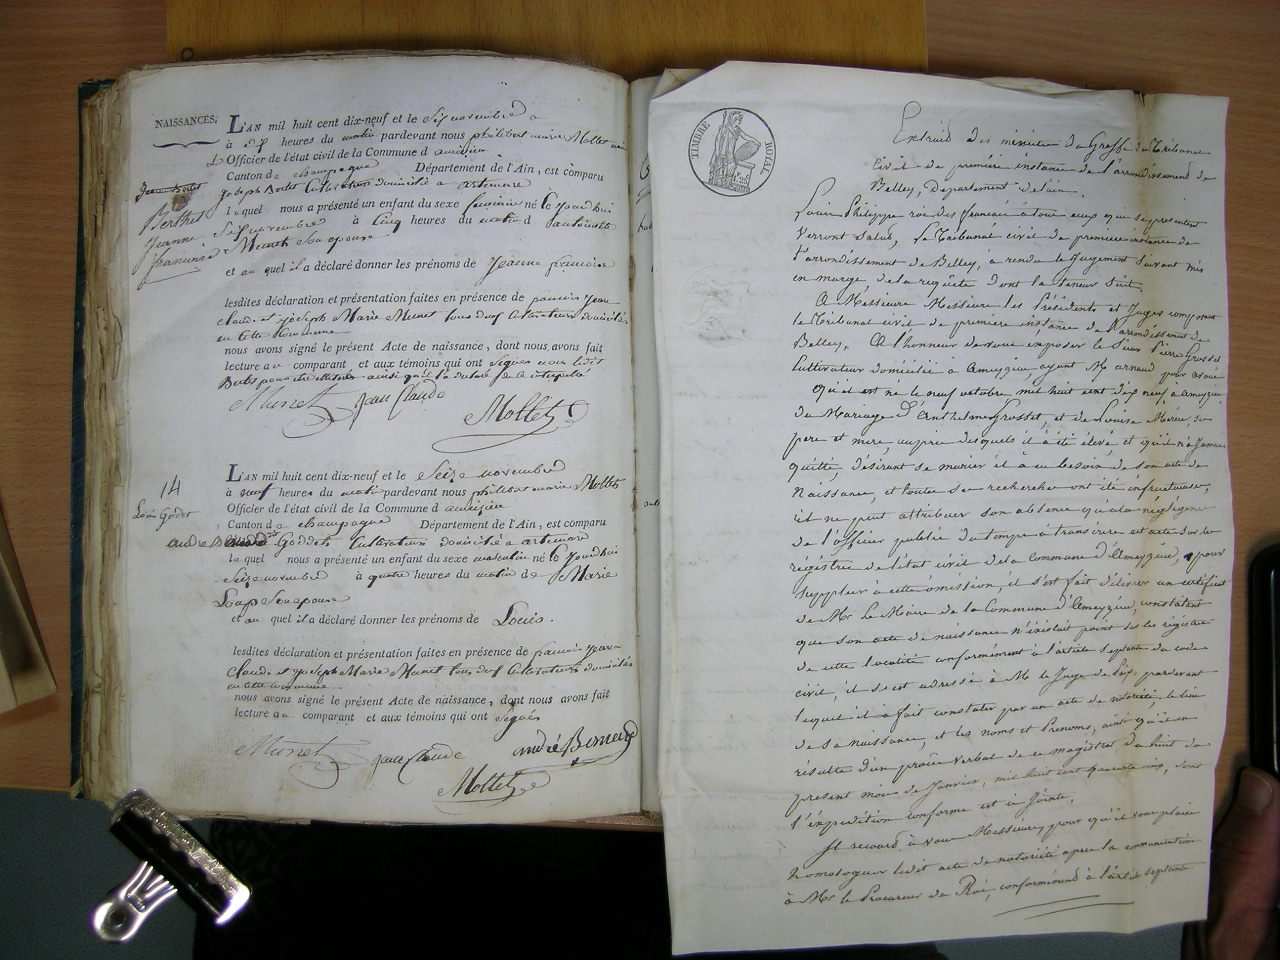 NAISSANCES.
L'AN mil huit cent dix-neuf et le Six novembre
à dix heures du matin pardevant nous philibert marie Mollet
Officier de l'état civil de la Commune d'
Canton de champagne Département de l'Ain, est comparu
Joseph Bertet Cultivateur domicilié à artemare
lequel nous a présenté un enfant du sexe feminin né Ce Jourdhui
Six novembre à Cinq heures du matin de
Munet Son epouse
et au quel il a déclaré donner les prénoms de Jeanne francoise
Berthet
Jeanne
francoise
lesdites déclaration et présentation faites en présence de
claude et joseph Marie Munet tous deux Cultivateurs domiciliés
en Cette Commune
nous avons signé le présent Acte de naissance, dont nous avons fait
lecture au comparant et aux témoins qui ont Signés
Munet jean Claude
Mollet
L'AN mil huit cent dix-neuf et le Seize novembre
à neuf heures du matin pardevant nous philibert marie Mollet
Officier de l'état civil de la Commune d
Canton de champagne Département de l'Ain, est comparu
14
Louis Goddet
andré Goddet Cultivateur domicilié à artemare
lequel nous a présenté un enfant du sexe masculin né Ce Jourdhui
Seize novembre à quatre heures du matin de Marie
Loup Son epouse
et au quel il a déclaré donner les prénoms de Louis.
lesdites déclaration et présentation faites en présence de
claude et joseph Marie Munet tous deux Cultivateurs domiciliés
en Cette Commune
nous avons signé le présent Acte de naissance, dont nous avons fait
lecture au comparant et aux témoins qui ont Signés
Munet jean Claude
Mollet
TIMBRE ROYAL
Extrait des minutes du Greffe du Tribunal
Civil de première instance de l'arrondissement de
Belley, Département de l'ain.
Louis Philippe roi des français à tous ceux qui se présentes
Verront Salut, Le Tribunal civil de première instance de
l'arrondissement de Belley, a rendu le Jugement Suivant mis
en marge de la requête dont la teneur Suit.
A Messieurs Messieurs les Présidents et Juges composant
le Tribunal civil de première instance de l'arrondissement de
Belley, A l'honneur de vous exposer le Sieur Pierre Grosset
Cultivateur domicilié à Ameyzieu ayant Mr arnaud pour avoué
qu'il est né le neuf octobre mil huit cent dix neuf à ameyzieu
du Mariage d'Anthelme Grosset et de Louise ses
père et mère, auprès desquels il a été élevé et qu'il n'a jamais
quitté, désirant se marier il a eu besoin de son acte de
Naissance, et toutes ses recherches ont été infructueuses,
il ne peut attribuer son absence qu'à la négligence
de l'officier public du temps à transcrire cet acte sur les
régistres de l'état civil de la Commune d'Ameyzieu, pour
suppléer à cette omission, il s'est fait délivrer un certificat
de Mr le Maire de la Commune d'Ameyzieu, constatant
que son acte de naissance n'existait point sur les registres
de cette localité conformément à l'article septante du code
civil, il s'est adressé à Mr le Juge de Paix pardevant
lequel il a fait constater par un acte de notoriété, le lieu
de sa naissance, et les noms et Prenoms, ainsi qu'il en
résulte d'un procès verbal de ce magistrat du huit du
présent mois de Janvier, mil huit cent quarante six, dont
l'expédition conforme est ci Jointe.
Il recourt à vous Messieurs, pour qu'il vous plaise
homologuer ledit acte de notoriété après la communication
à Mr le Procureur du Roi, conformément à l'art. septante